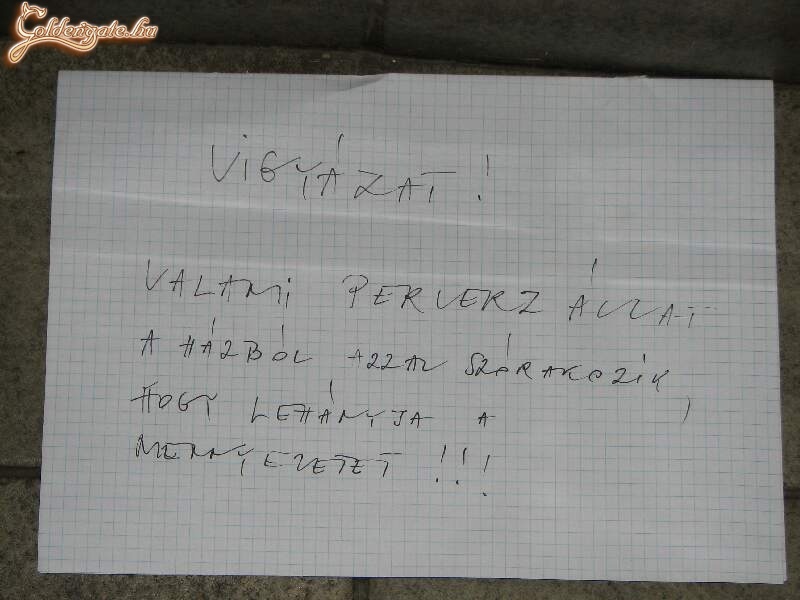 Goldengate.hu
VIGYÁZAT!
VALAMI PERVERZ ÁLLAT
A HÁZBÓL AZZAL SZÓRAKOZIK,
HOGY LEHÁNYJA A
MENNYEZETET!!!